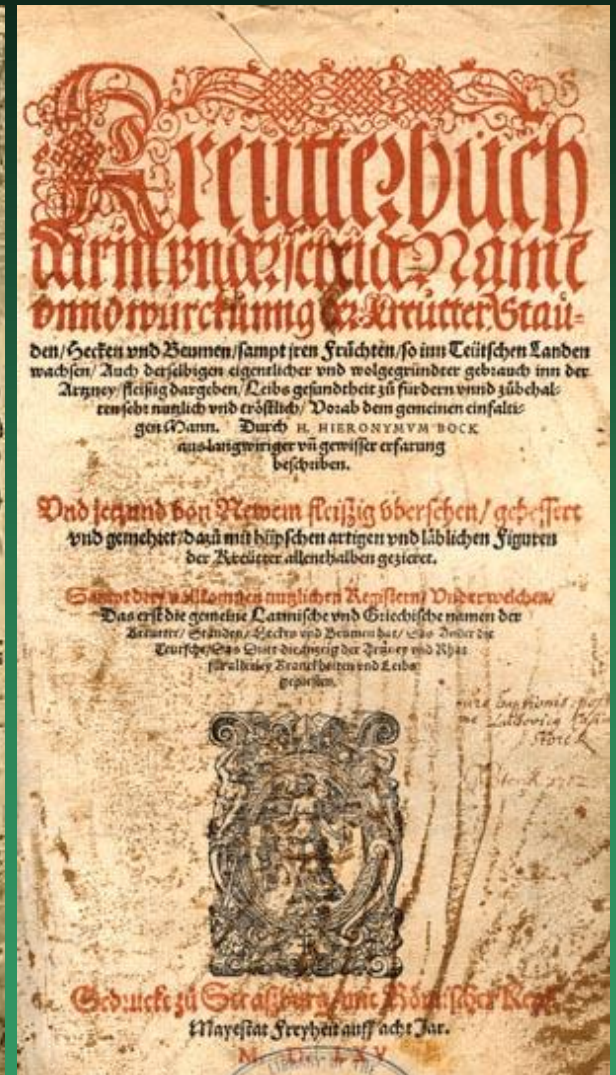 Kreütterbuch
darin vnderscheidt Namē
vnnd würckũng der Kreütter, Stau=
den/ Hecken vnd Beumen/ sampt jren Früchten/ so inn Teütschen Landen
wachsen/ Auch derselbigen eigentlicher vnd wolgegründter gebrauch inn der
Artzney/ fleißig dargeben/ Leibs gesundtheit zů fürdern vnnd zůbehal=
ten sehr nutzlich vnd tröstlich/ Vorab dem gemeinen einfalti=
gen Mann. Durch H. HIERONYMVM BOCK
aus langwiriger vñ gewisser erfarung
beschriben.
Vnd jetzund von Newem fleißig übersehen/ gebessert
vnd gemehret/ dazů mit hüpschen artigen vnd läblichen Figuren
der Kreütter allenthalben gezieret.
Sampt drey vollkomnen nutzlichen Registern/ Vnder welchen/
Das erst die gemeine Latinische vnd Griechische namen der
Kreutter/ Stauden/ Heckē vnd Beumen hat/ Das Ander die
Teutsche/ Das Dritt die anzeig der Artzney vnd Rhat
für allerley Kranckheiten vnd Leibs
gepresten.
1782
Gedruckt zů Straßburg/ mit Römischer Keys.
Mayestat Freyheit auff acht Jar.
M. D. LXV
LIBRARY OF THE